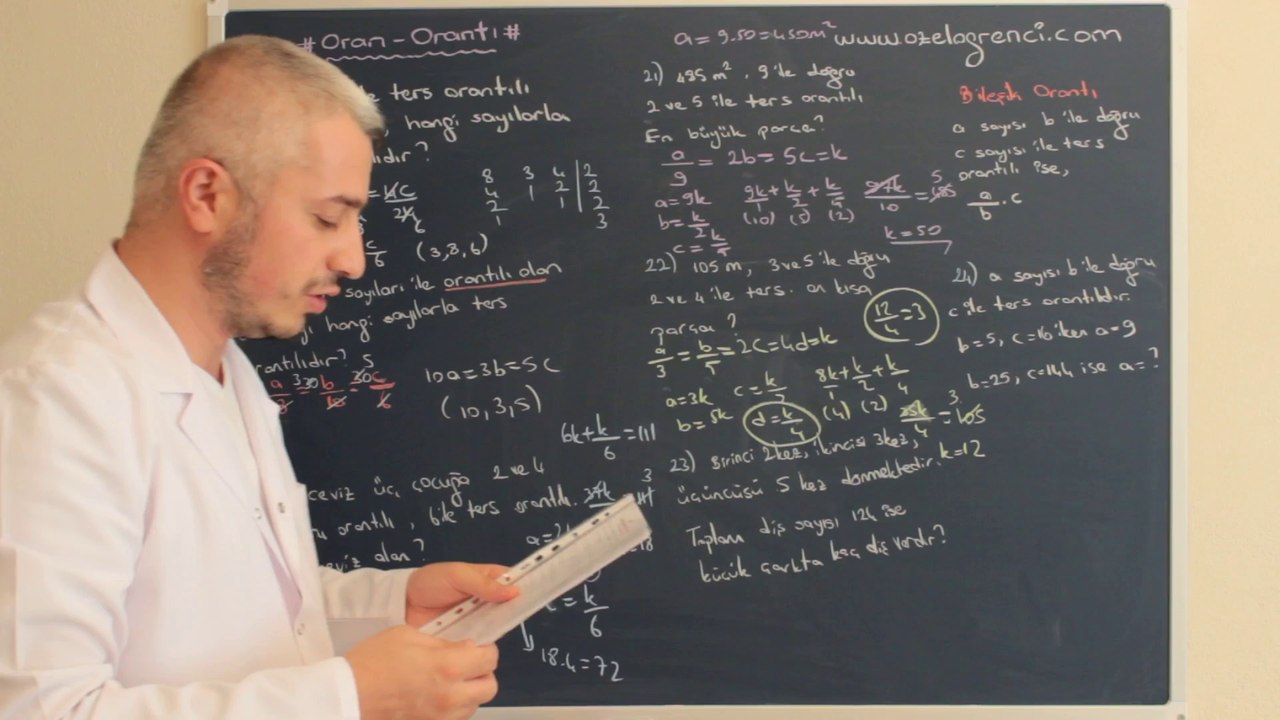 # Oran - Orantı #
ters orantılı
, hangi sayılarla
8 3 4 | 2
4 1 2 | 2
2 1 | 2
1 3
(3,8,6)
sayıları ile orantılı olan
hangi sayılarla ters
orantılıdır?
10a=3b=5c
(10,3,5)
6k+k/6=111
ceviz üç çocuğa 2 ve 4
orantılı, 6 ile ters orantılı.
ceviz alan?
k/6
18.4=72
a=9.50=450m²
www.ozelogrenci.com
21) 485 m², 9 ile doğru
2 ve 5 ile ters orantılı
En büyük parça?
a/9 = 2b=5c=k
a=9k
9k/1+k/2+k/5
(10) (5) (2)
97k/10=485 5
b=k/2
c=k/5
k=50
22) 105 m, 3 ve 5 ile doğru
2 ve 4 ile ters. en kısa
parça?
12/4=3
a/3=b/5=2c=4d=k
a=3k c=k/2
8k/1+k/2+k/4
b=5k
d=k/4
(4) (2)
35k/4=105 3
k=12
23) Birinci 2 kez, ikincisi 3 kez,
üçüncüsü 5 kez dönmektedir.
Toplam diş sayısı 124 ise
küçük çarkta kaç diş vardır?
Bileşik Orantı
a sayısı b ile doğru
c sayısı ile ters
orantılı ise,
a/b . c
24) a sayısı b ile doğru
c ile ters orantılıdır.
b=5, c=16 iken a=9
b=25, c=144 ise a=?